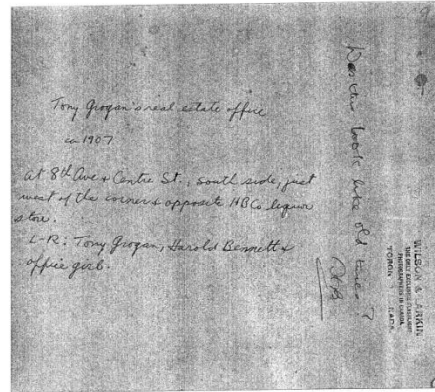 Tony Grogan's real estate office
ca 1907
at 8th Ave & Centre St., south side, just
west of the corner & opposite HBCo liquor
store.
L-R: Tony Grogan, Harold Bennett &
office girl.
Doesn't this look like old times?
WILSON & LARKIN
THE ONLY EXCLUSIVE FLASHLIGHT
PHOTOGRAPHERS IN CANADA
TORONTO CANADA